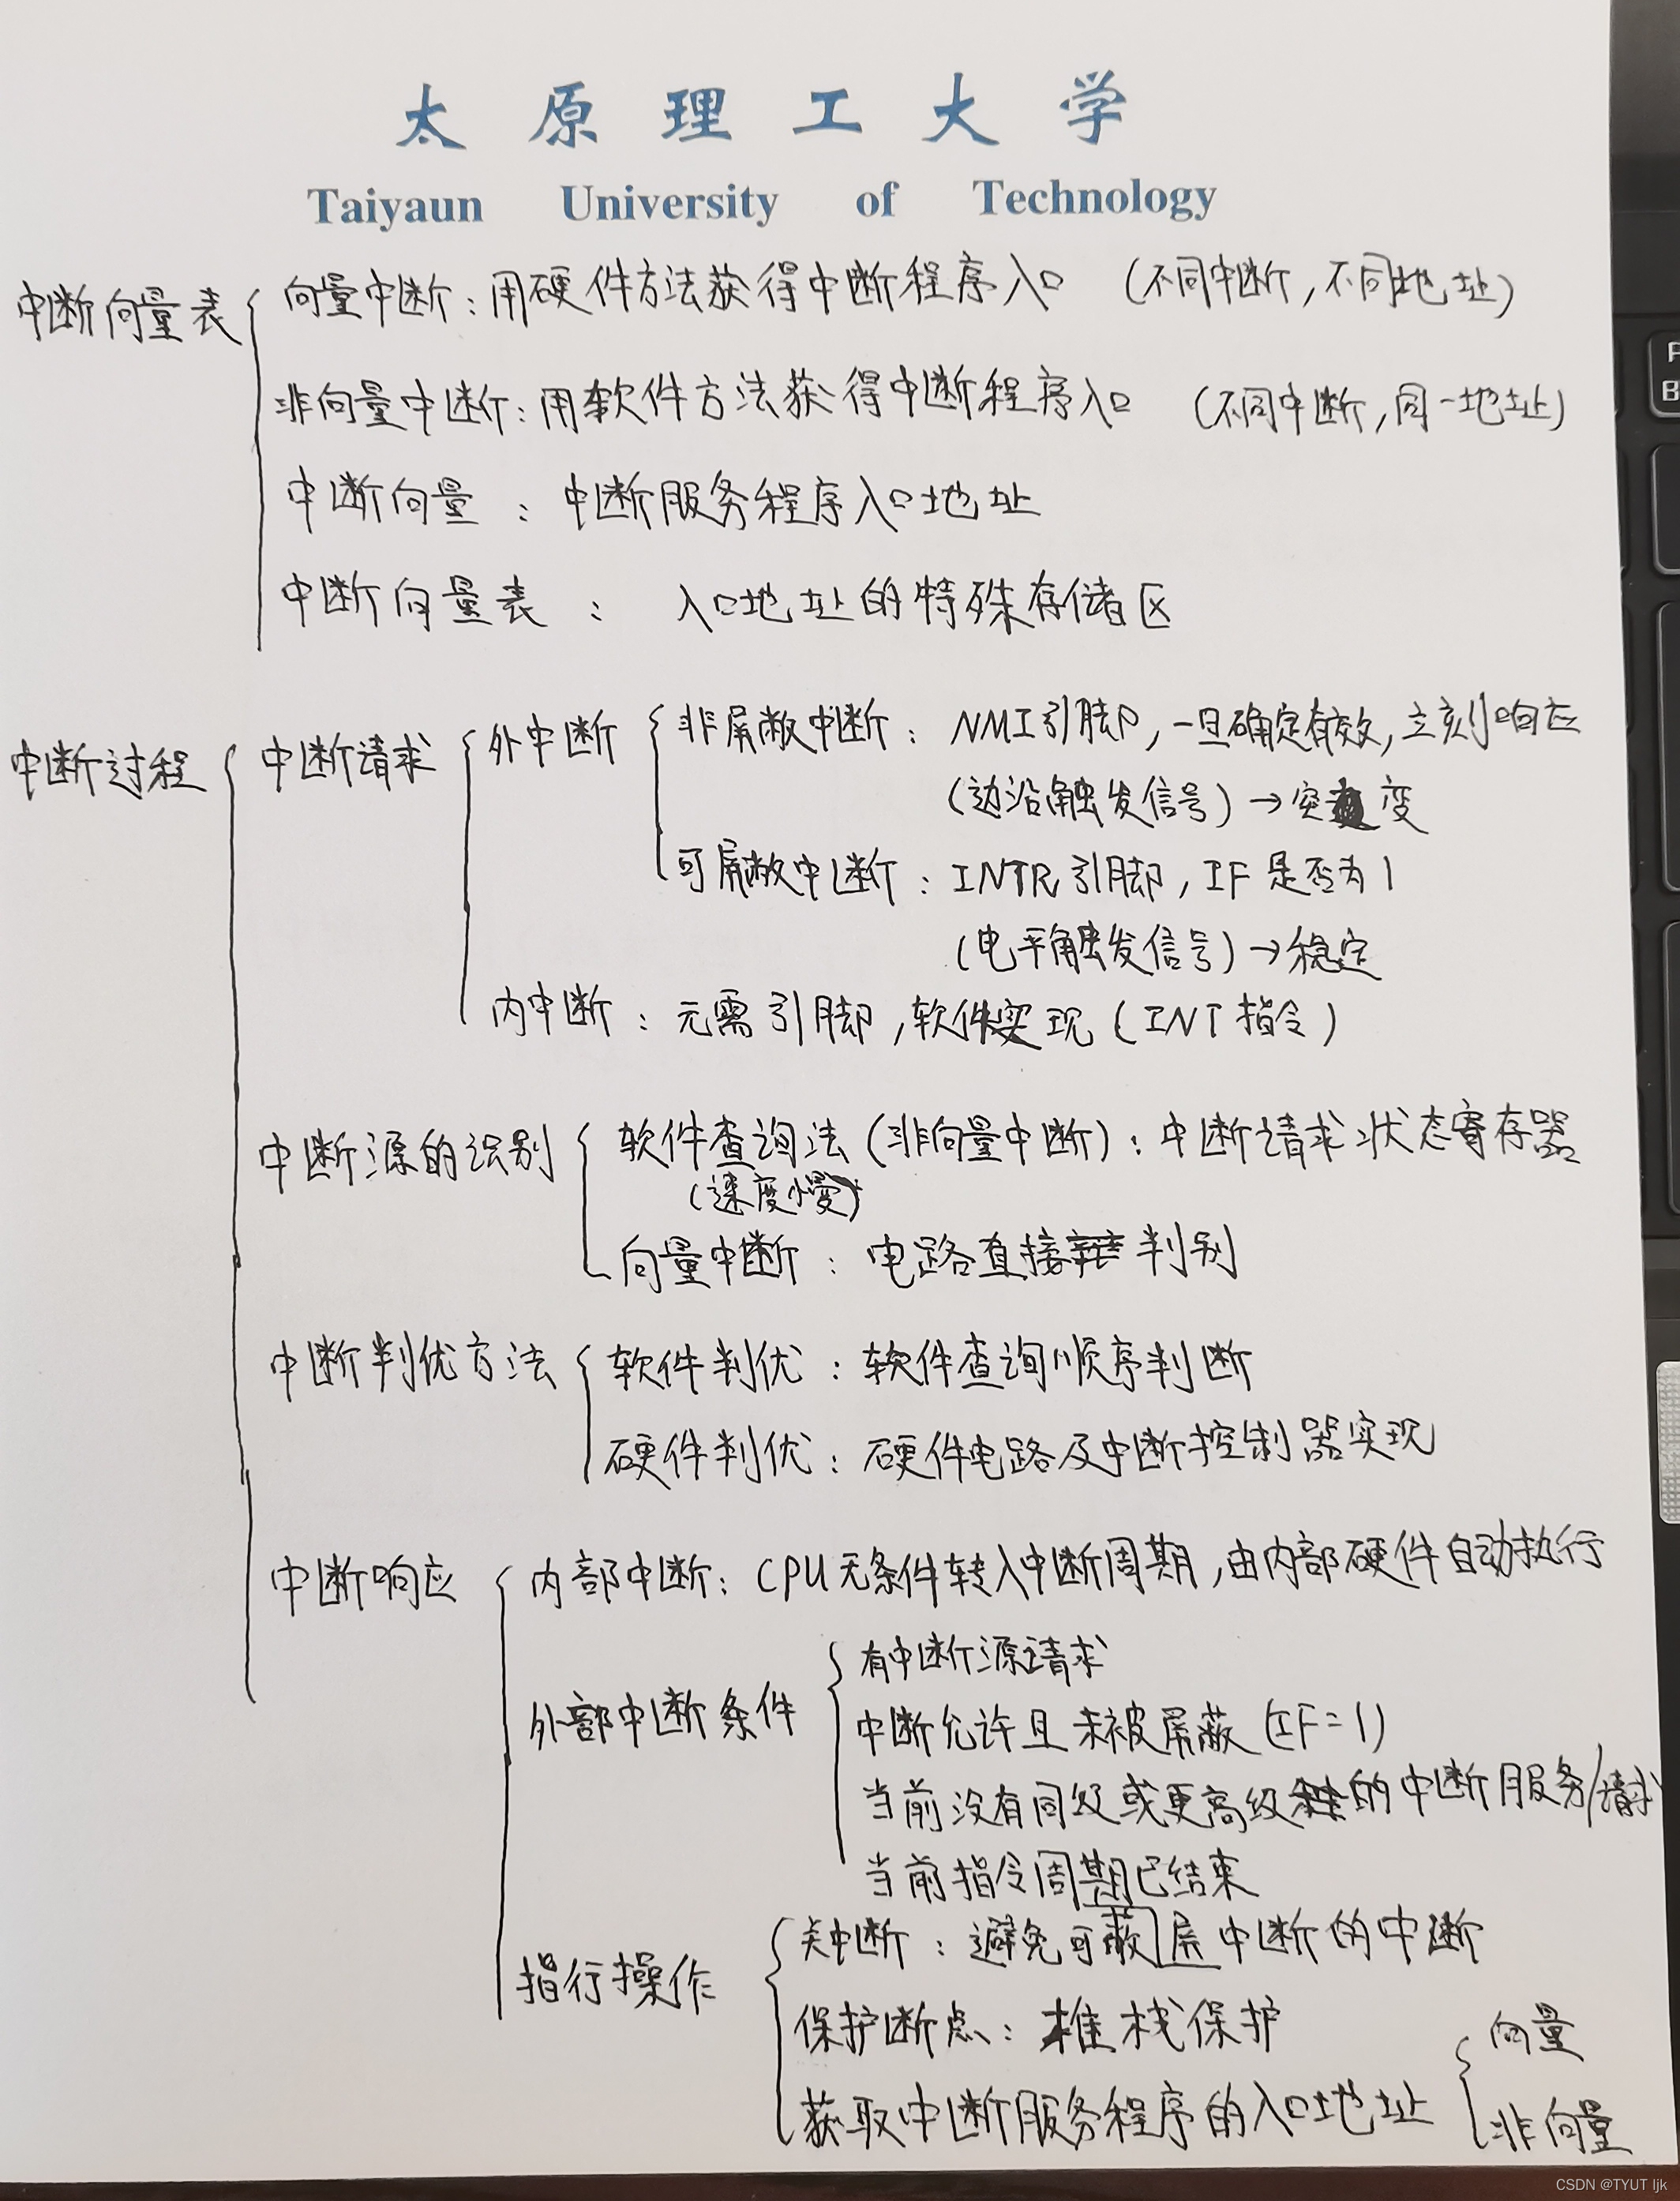 太原理工大学
Taiyaun University of Technology
中断向量表 向量中断：用硬件方法获得中断程序入口 （不同中断，不同地址）
非向量中断：用软件方法获得中断程序入口 （不同中断，同一地址）
中断向量：中断服务程序入口地址
中断向量表：入口地址的特殊存储区
中断过程 中断请求 外中断 非屏蔽中断：NMI引脚，一旦确定有效，立刻响应
（边沿触发信号）→突变
可屏蔽中断：INTR引脚，IF是否为1
（电平触发信号）→稳定
内中断：无需引脚，软件实现（INT指令）
中断源的识别 软件查询法（非向量中断）：中断请求状态寄存器
（速度慢）
向量中断：电路直接判别
中断判优方法 软件判优：软件查询顺序判断
硬件判优：硬件电路及中断控制器实现
中断响应 内部中断：CPU无条件转入中断周期，由内部硬件自动执行
有中断源请求
外部中断条件 中断允许且未被屏蔽（IF=1）
当前没有同级或更高级的中断服务/请求
当前指令周期已结束
指行操作 关中断：避免可蔽屏中断的中断
保护断点：堆栈保护
获取中断服务程序的入口地址 向量
非向量
P
B
CSDN @TYUT ljk